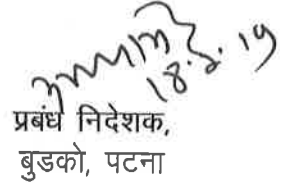 18.2.19
प्रबंध निदेशक,
बुडको, पटना